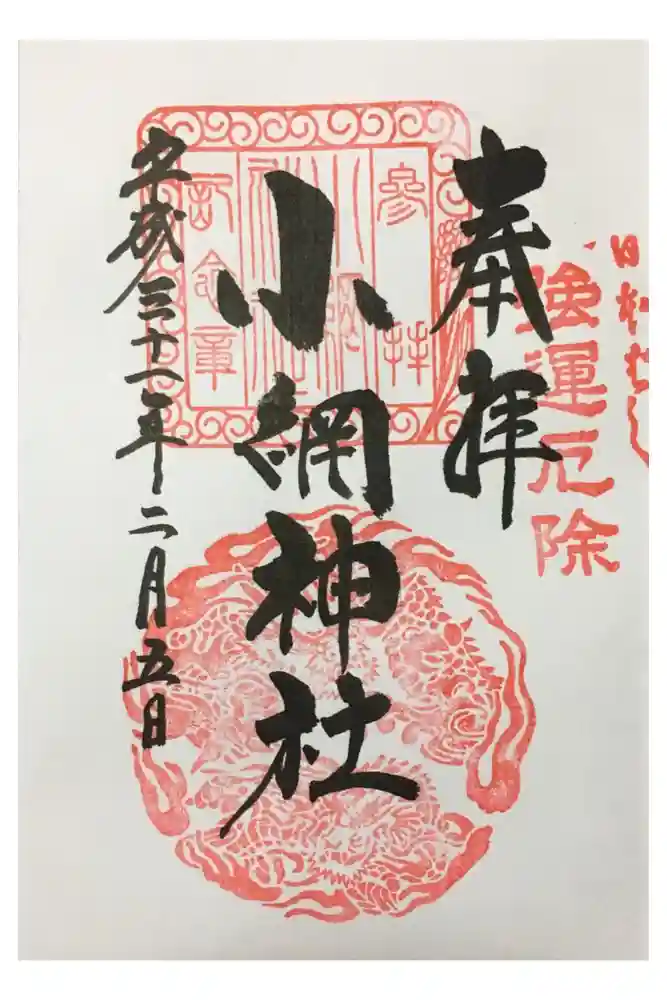 奉拝
強運厄除
小網神社
参拝
小網神社
記念章
平成三十一年二月五日